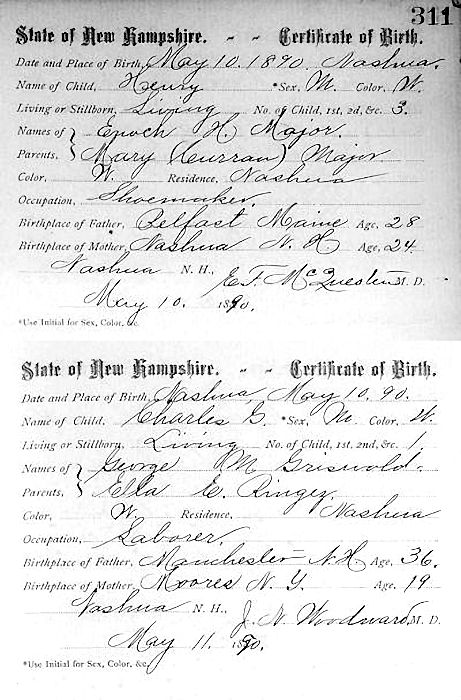 311
State of New Hampshire. - - Certificate of Birth.
Date and Place of Birth, May 10. 1890. Nashua.
Name of Child, Henry *Sex, M. Color, W.
Living or Stillborn, Living No. of Child, 1st, 2d, &c. 3.
Names of Enoch H. Major.
Parents, Mary (Curran) Major.
Color, W. Residence, Nashua
Occupation, Shoemaker.
Birthplace of Father, Belfast Maine Age, 28
Birthplace of Mother, Nashua N. H. Age, 24
Nashua N. H., E. F. McQuesten M. D.
May 10. 1890.
*Use Initial for Sex, Color, &c.
State of New Hampshire. - - Certificate of Birth.
Date and Place of Birth, Nashua, May 10, 90.
Name of Child, Charles G. *Sex, M. Color, W.
Living or Stillborn, Living No. of Child, 1st, 2nd, &c. 1.
Names of George M. Griswold.
Parents, Ella E. Ringer.
Color, W. Residence, Nashua
Occupation, Laborer.
Birthplace of Father, Manchester N. H. Age, 36.
Birthplace of Mother, Moores N. Y. Age, 19
Nashua N. H., J. N. Woodward, M. D.
May 11. 1890.
*Use Initial for Sex, Color, &c.